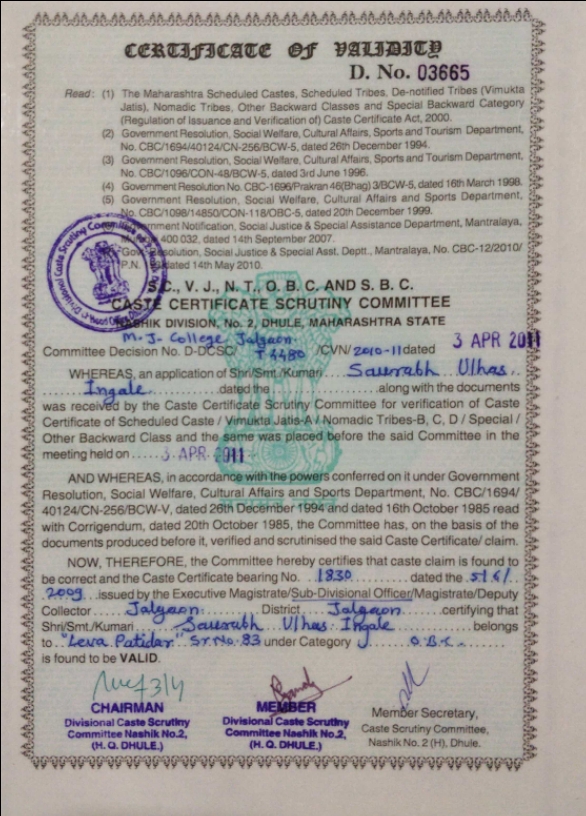 CERTIFICATE OF VALIDITY
D. No. 03665
Read: (1) The Maharashtra Scheduled Castes, Scheduled Tribes, De-notified Tribes (Vimukta
Jatis), Nomadic Tribes, Other Backward Classes and Special Backward Category
(Regulation of Issuance and Verification of) Caste Certificate Act, 2000.
(2) Government Resolution, Social Welfare, Cultural Affairs, Sports and Tourism Department,
No. CBC/1694/40124/CN-256/BCW-5, dated 26th December 1994.
(3) Government Resolution, Social Welfare, Cultural Affairs, Sports and Tourism Department,
No. CBC/1096/CON-48/BCW-5, dated 3rd June 1996.
(4) Government Resolution No. CBC-1696/Prakran 46(Bhag) 3/BCW-5, dated 16th March 1998.
(5) Government Resolution, Social Welfare, Cultural Affairs and Sports Department,
No. CBC/1098/14850/CON-118/OBC-5, dated 20th December 1999.
Notification, Social Justice & Special Assistance Department, Mantralaya,
400 032, dated 14th September 2007.
Resolution, Social Justice & Special Asst. Deptt., Mantralaya, No. CBC-12/2010/
P.N. dated 14th May 2010.
S.C., V. J., N. T., O. B. C. AND S. B. C.
CASTE CERTIFICATE SCRUTINY COMMITTEE
NASHIK DIVISION, No. 2, DHULE, MAHARASHTRA STATE
M. J. College Jalgaon
Committee Decision No. D-DCSC/ T 4480 /CVN/ 2010-11 dated 3 APR 2011
WHEREAS, an application of Shri/Smt./Kumari Saurabh Ulhas
Ingale dated the along with the documents
was received by the Caste Certificate Scrutiny Committee for verification of Caste
Certificate of Scheduled Caste / Vimukta Jatis-A / Nomadic Tribes-B, C, D / Special /
Other Backward Class and the same was placed before the said Committee in the
meeting held on 3 APR 2011
AND WHEREAS, in accordance with the powers conferred on it under Government
Resolution, Social Welfare, Cultural Affairs and Sports Department, No. CBC/1694/
40124/CN-256/BCW-V, dated 26th December 1994 and dated 16th October 1985 read
with Corrigendum, dated 20th October 1985, the Committee has, on the basis of the
documents produced before it, verified and scrutinised the said Caste Certificate/ claim.
NOW, THEREFORE, the Committee hereby certifies that caste claim is found to
be correct and the Caste Certificate bearing No. 1830 dated the 5/6/
2009 issued by the Executive Magistrate/Sub-Divisional Officer/Magistrate/Deputy
Collector Jalgaon District Jalgaon certifying that
Shri/Smt./Kumari Saurabh Ulhas Ingale belongs
to "Leva Patidar" Sr. No. 83 under Category O.B.C.
is found to be VALID.
CHAIRMAN
Divisional Caste Scrutiny
Committee Nashik No.2,
(H. Q. DHULE.)
MEMBER
Divisional Caste Scrutiny
Committee Nashik No.2,
(H. Q. DHULE.)
Member Secretary,
Caste Scrutiny Committee,
Nashik No. 2 (H). Dhule.